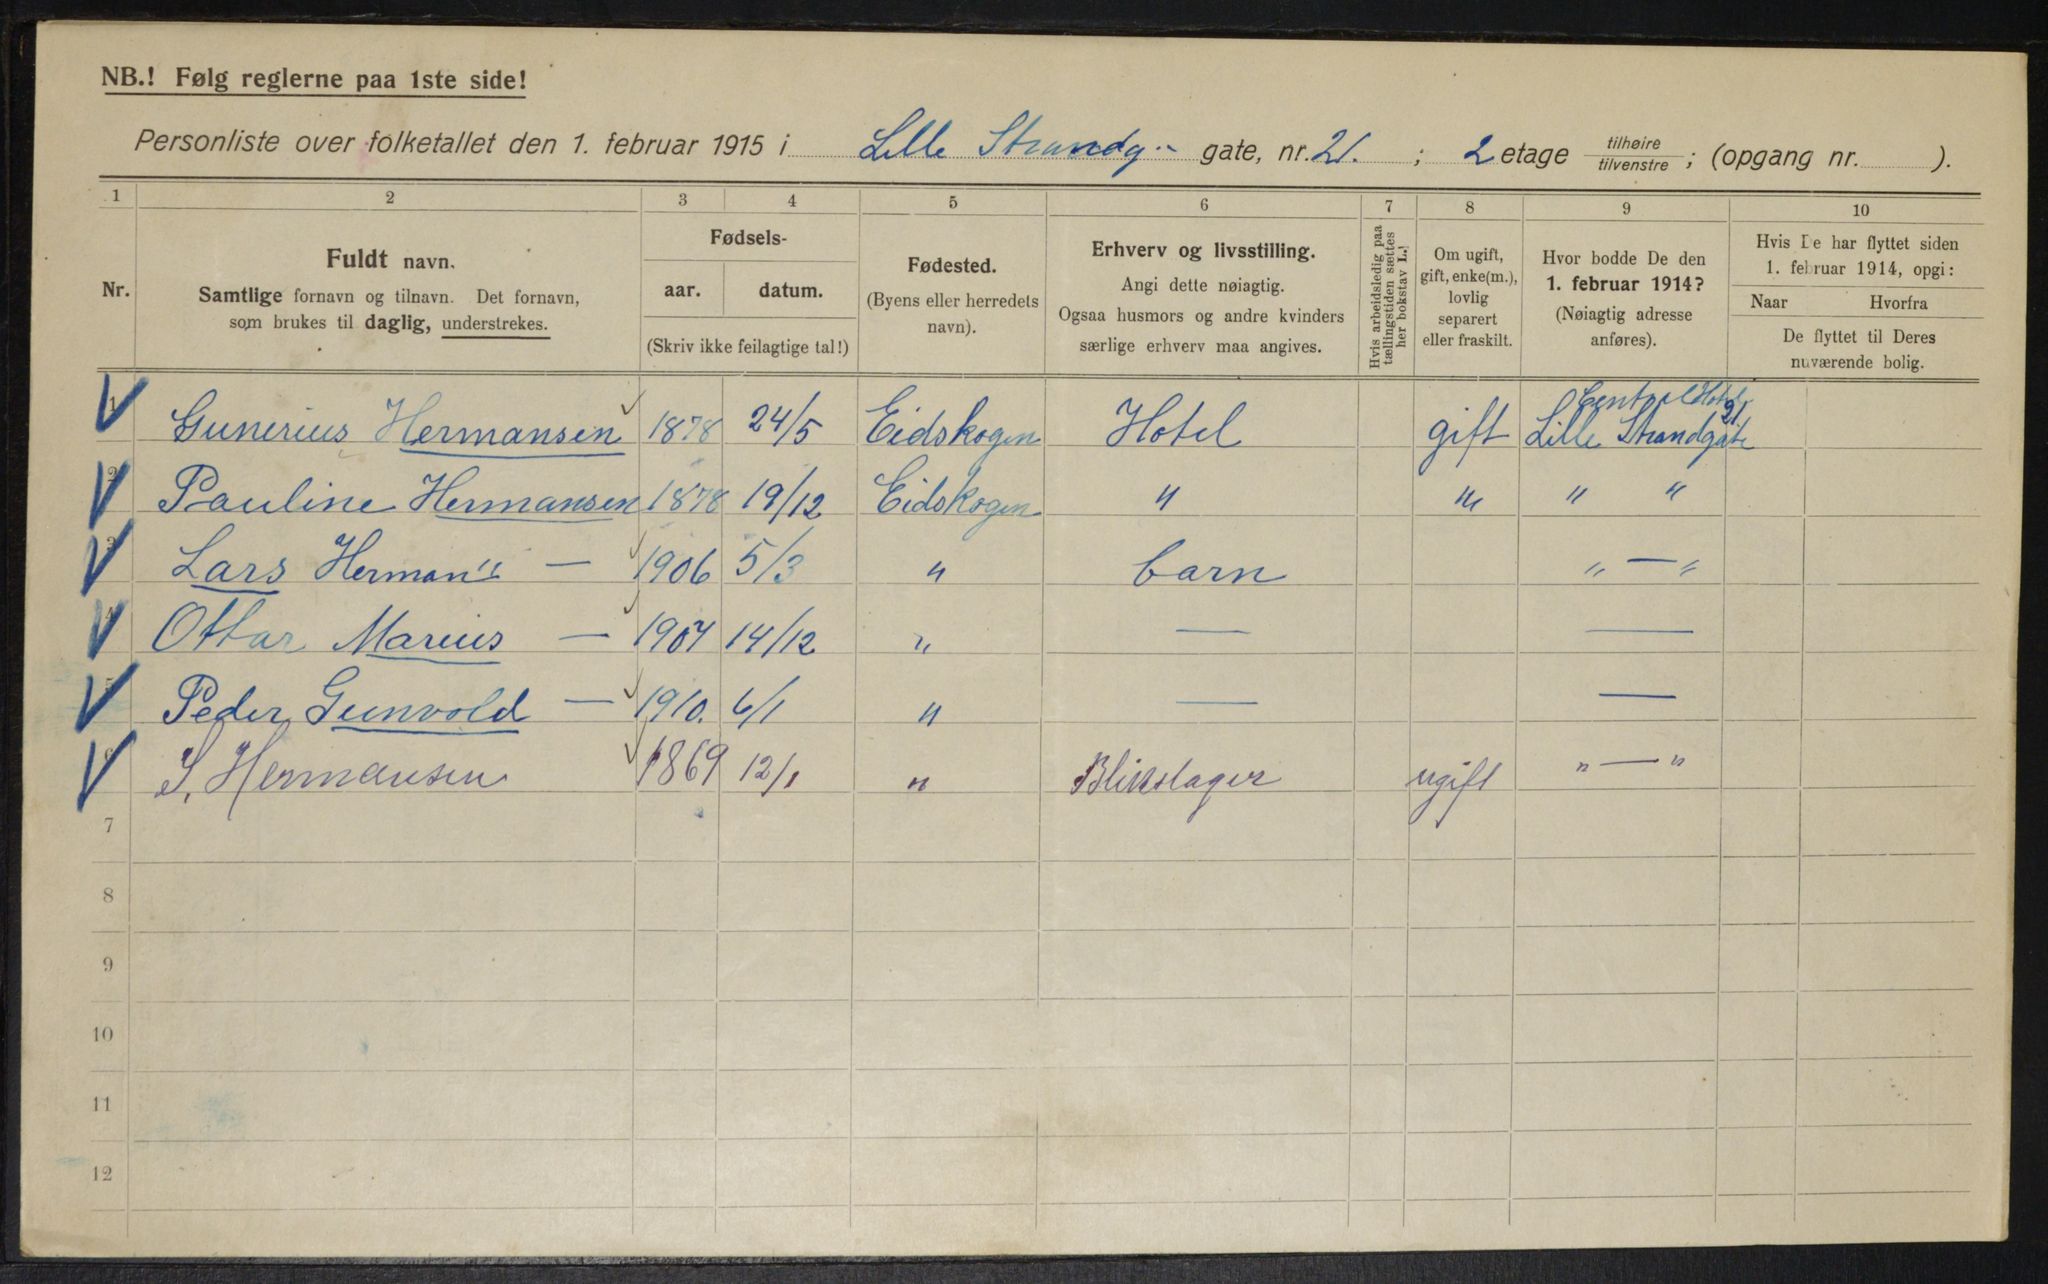 NB.! Følg reglerne paa 1ste side!
Personliste over folketallet den 1. februar 1915 i Lille Strandg.- gate, nr. 21. ; 2 etage tilhøire / tilvenstre ; (opgang nr. ).
1 2 3 4 5 6 7 8 9 10
Nr.
Fuldt navn.
Samtlige fornavn og tilnavn. Det fornavn,
som brukes til daglig, understrekes.
Fødsels-
aar. datum.
(Skriv ikke feilagtige tal!)
Fødested.
(Byens eller herredets
navn).
Erhverv og livsstilling.
Angi dette nøiagtig.
Ogsaa husmors og andre kvinders
særlige erhverv maa angives.
Hvis arbeidsledig paa
tællingstiden sættes
her bokstav L.
Om ugift,
gift, enke(m.),
lovlig
separert
eller fraskilt.
Hvor bodde De den
1. februar 1914?
(Nøiagtig adresse
anføres).
Hvis De har flyttet siden
1. februar 1914, opgi:
Naar Hvorfra
De flyttet til Deres
nuværende bolig.
Central Hotel
1 Gunerius Hermansen 1878 24/5 Eidskogen Hotel gift Lille Strandgate 21
2 Pauline Hermansen 1878 19/12 Eidskogen " " " "
3 Lars Herman" — 1906 5/3 " barn " — "
4 Ottar Marius — 1907 14/12 " — —
5 Peder Gunvold — 1910. 6/1 " — —
6 S. Hermansen 1869 12/1 " Blikslager ugift " — "
7
8
9
10
11
12